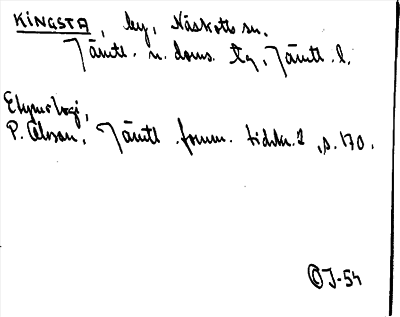 KINGSTA, by, Näskotts sn.
Jämtl. n. doms. tg, Jämtl. l.
Etymologi,
P. Olsson, Jämtl. fornm. tidskr. 2, s. 170.
J-54